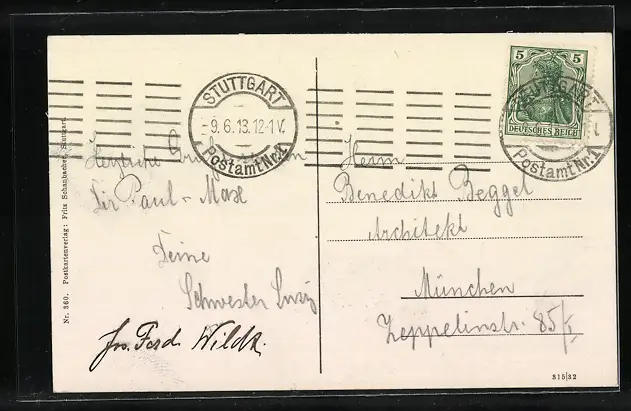 STUTTGART
9.6.13.12-1V.
Postamt Nr.1
5 5
DEUTSCHES REICH
STUTTGART
Postamt Nr.1
Herzliche
Paul - Maxe
Deine
Schwester
Ferd. Wildt.
Herrn
Benedikt Beggel
Architekt
München
Zeppelinstr. 85/I
Nr. 360. Postkartenverlag: Fritz Schanbacher, Stuttgart.
315/32